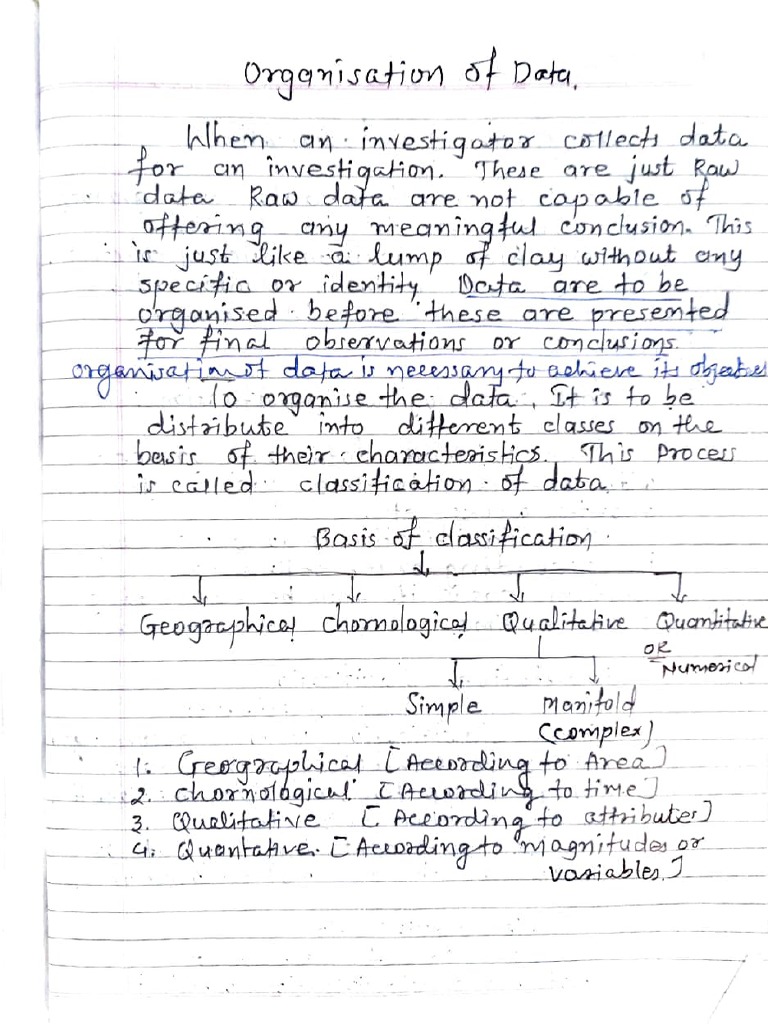 Organisation of Data.
When an investigator collects data
for an investigation. These are just Raw
data Raw data are not capable of
offering any meaningful conclusion. This
is just like a lump of clay without any
specific or identity Data are to be
organised before these are presented
for final observations or conclusions.
organisation of data is necessary to achieve its objectives
To organise the data, It is to be
distribute into different classes on the
basis of their characteristics. This Process
is called classification of data.
Basis of classification
Geographical Chornological Qualitative Quantitative
OR
Numerical
Simple Manifold
(complex)
1. Geographical [According to Area]
2. chornological [According to time]
3. Qualitative [According to attributes]
4. Quantative. [According to magnitudes or
variables.]